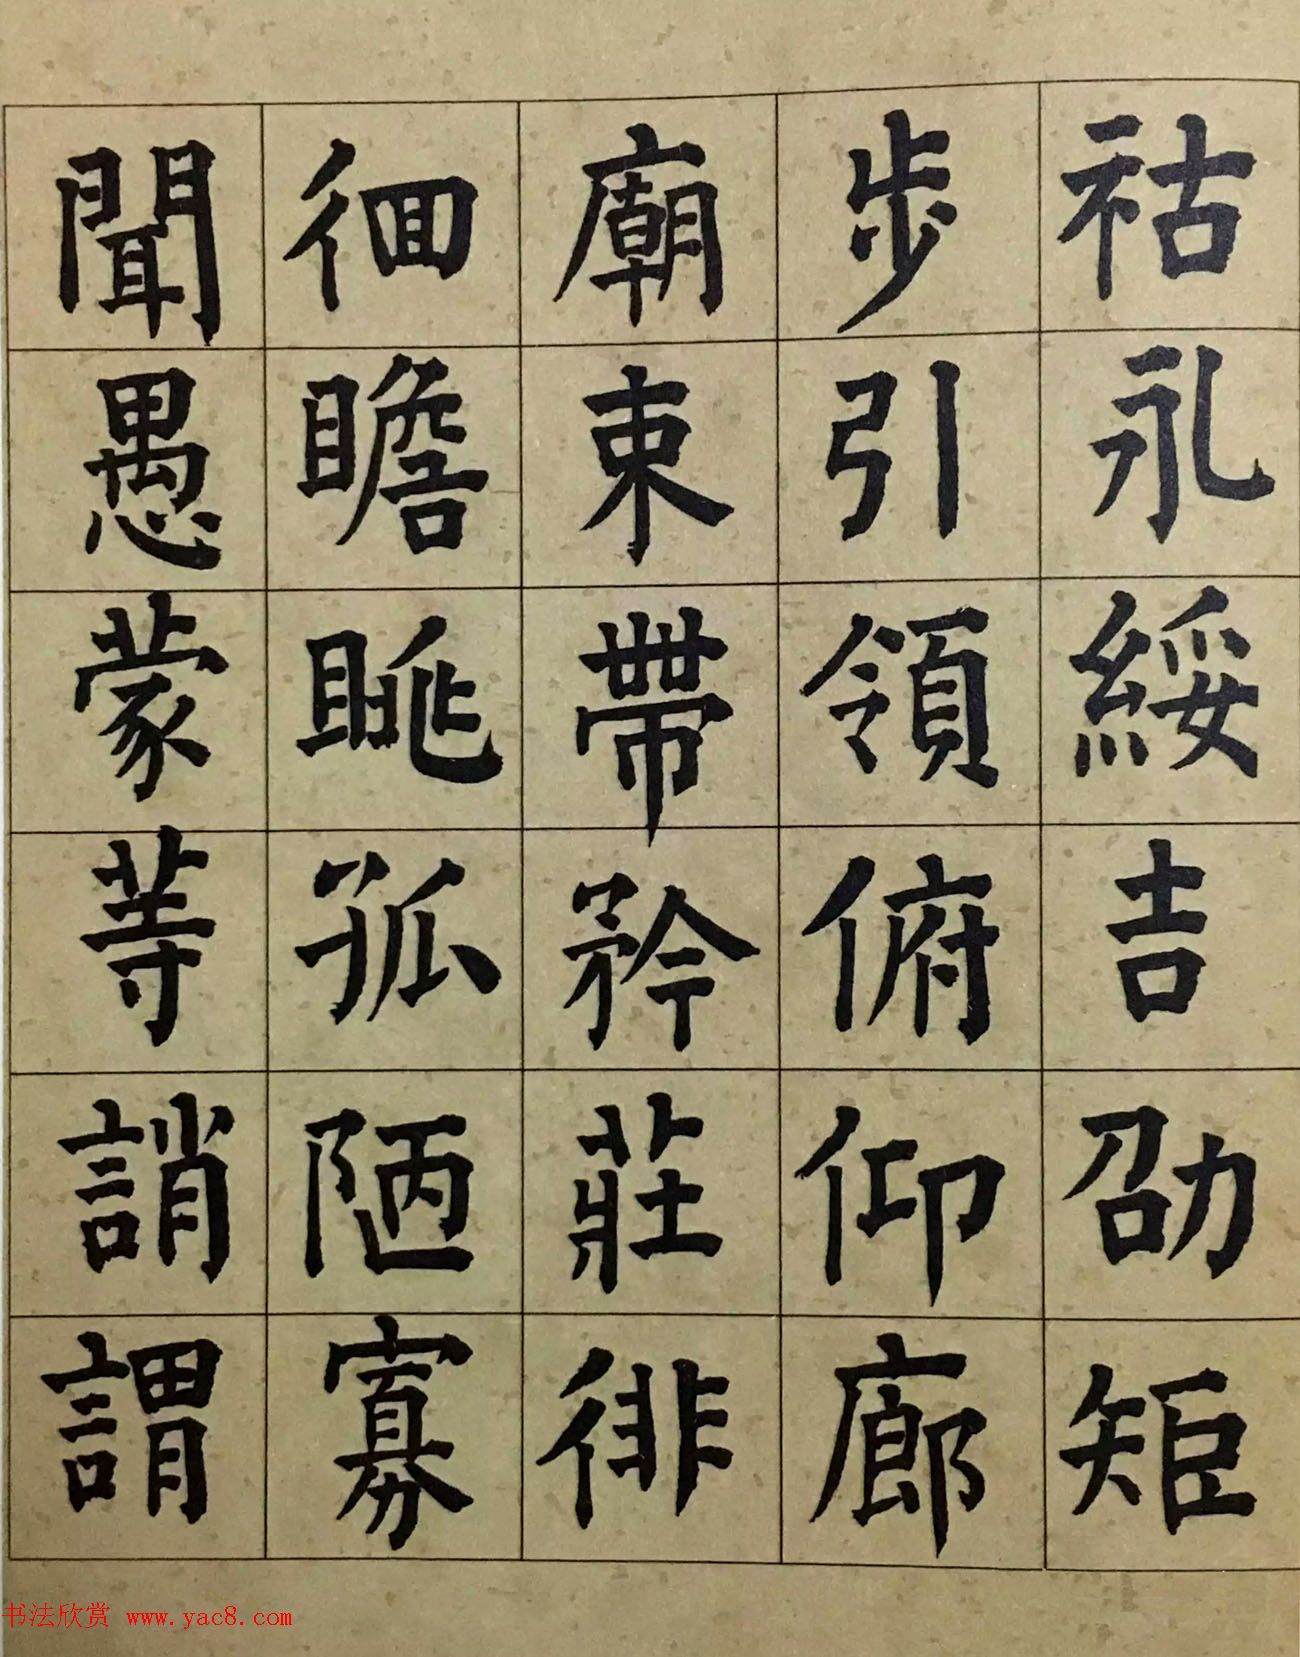 祜永綏吉劭矩
步引領俯仰廊
廟束帶矜莊徘
徊瞻眺孤陋寡
聞愚蒙等誚謂
书法欣赏 www.yac8.com